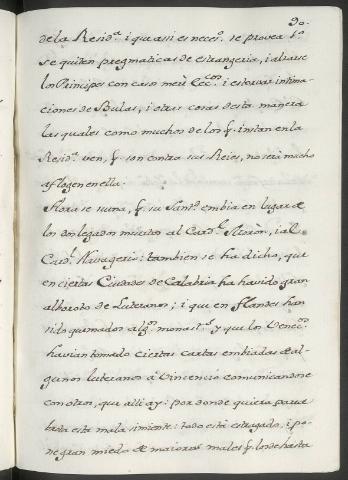 90.
de la Resid.ª i que assi es neces.º se provea 1.º
se quiten pregmaticas de estrangeria, i alzarse
los Principes con casos merè Ecc.cos i estorvar intima-
ciones de Bulas, i otras cosas desta manera
las quales como muchos de los q. instan en la
Resid.ª ven, q. son contra sus Reies, no serà mucho
aflogen en ella.
Aora se suena, q. su Sant.d embia en lugar de
los dos legados muertos al Card.l Moròn, i al
Card.l Navagerio: tambien se ha dicho, que
en ciertas Ciudades de Calabria ha havido gran
alboroto de Luteranos; i que en Flandes han
sido quemados alg.os monast.os y que los Venec.os
havian tomado ciertas cartas embiadas de al-
gunos luteranos a Vincencio comunicandose
con otros, que alli ay: por donde quiera parze
brota esta mala simiente: todo està estragado, i po-
ne gran miedo de maiores males q. los de hasta